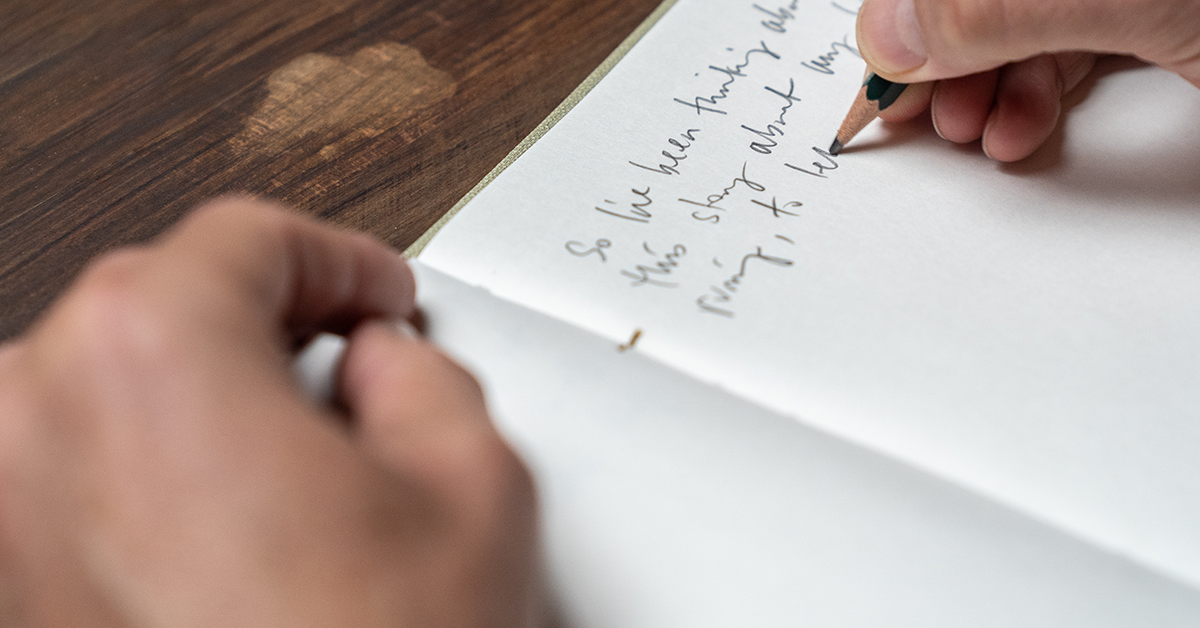 So I've been thinking abou
this story about my
ruing, to le